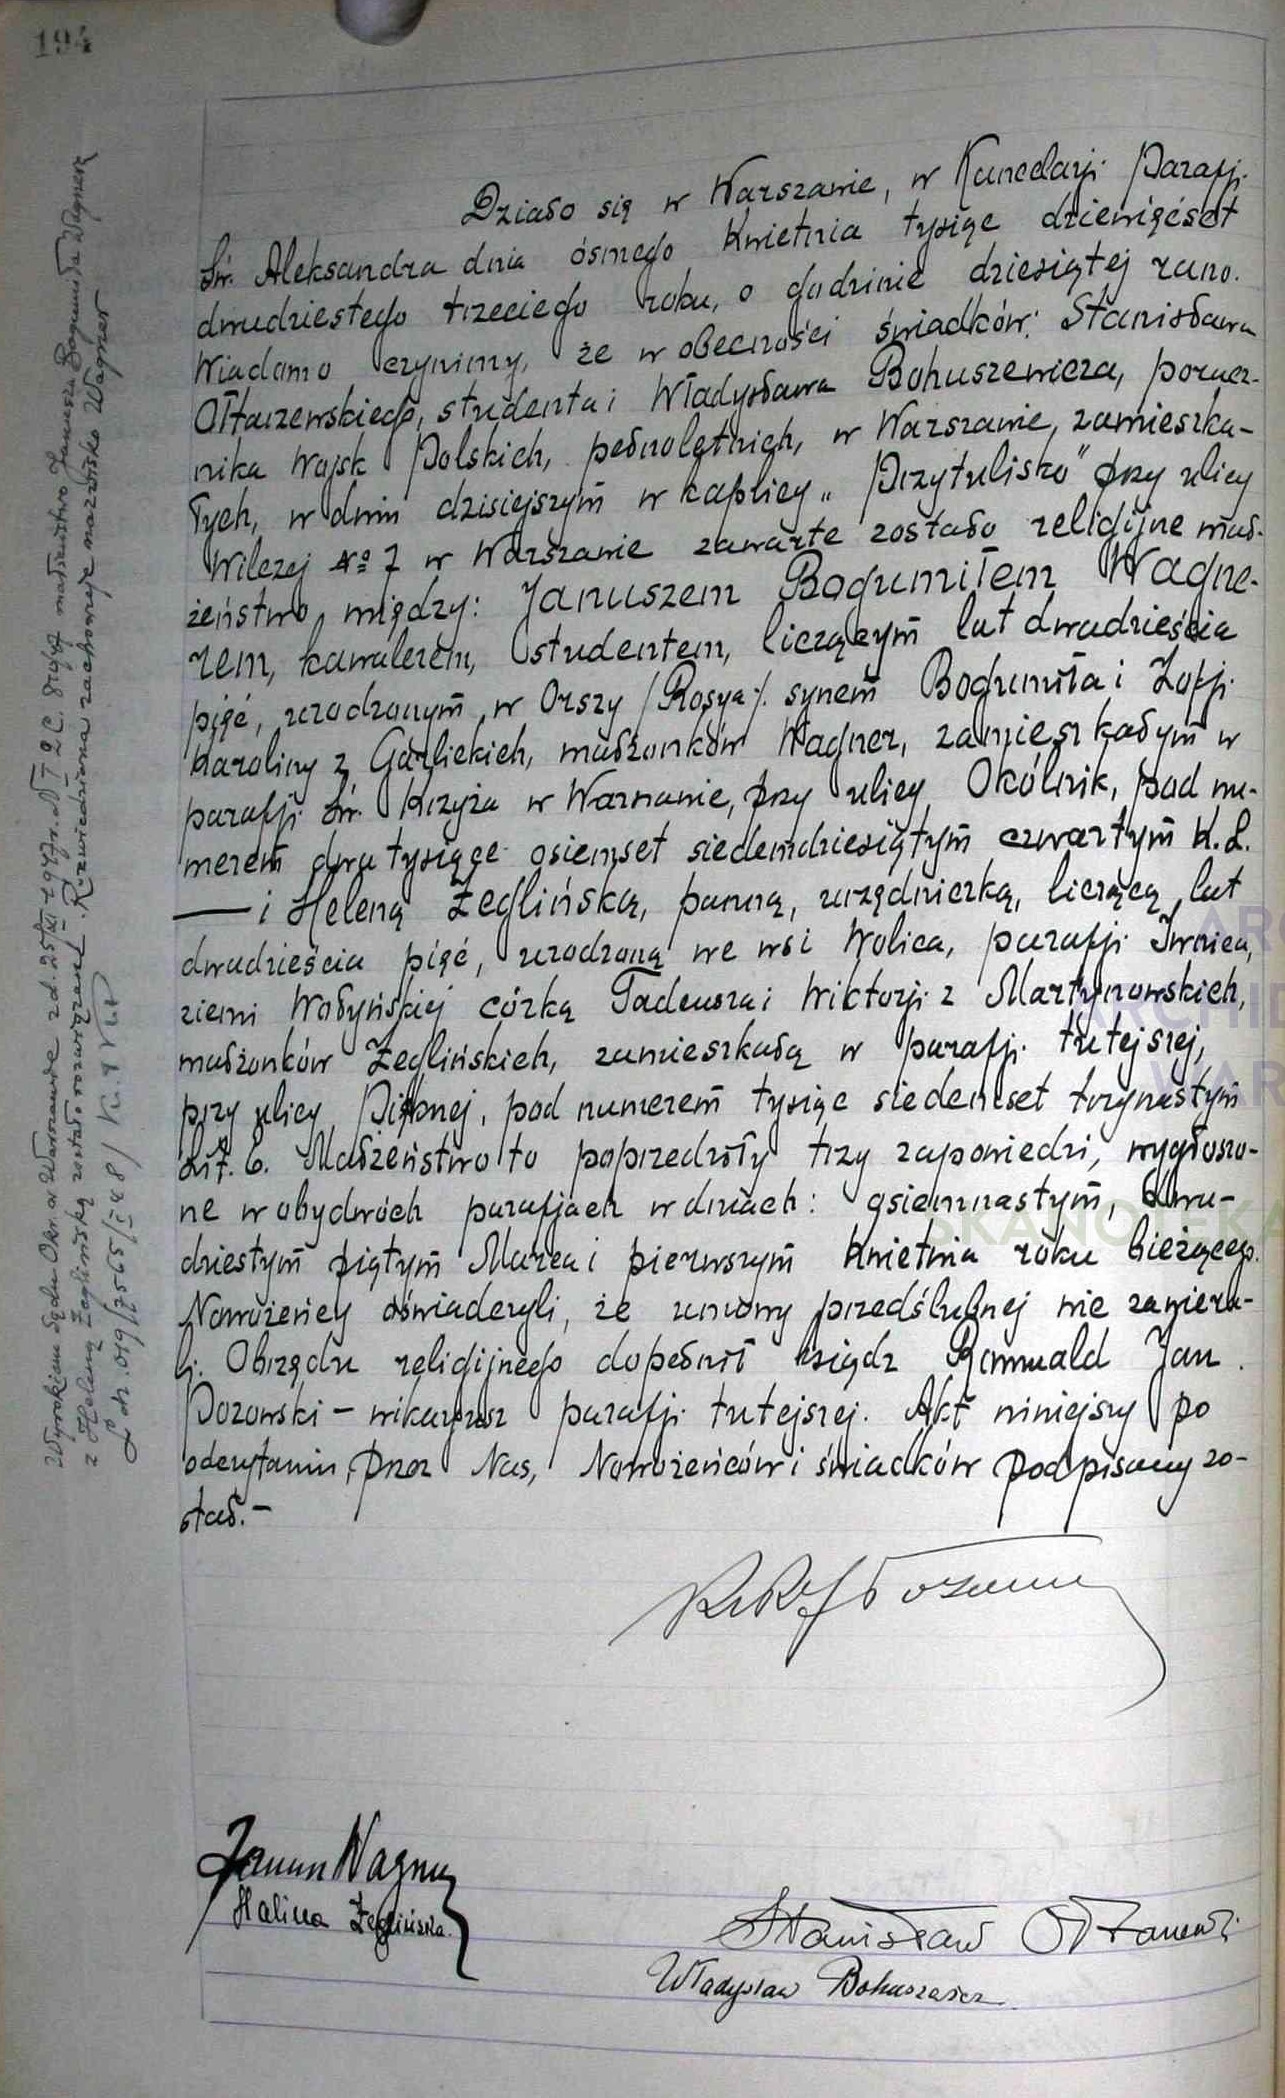 194
Działo się w Warszawie, w Kancelarji Parafji
Św. Aleksandra dnia ósmego Kwietnia tysiąc dziewięćset
dwudziestego trzeciego roku, o godzinie dziesiątej rano.
Wiadomo czynimy, że w obecności świadków: Stanisława
Ołtarzewskiego, studenta i Władysława Bohuszewicza, porucz-
nika Wojsk Polskich, pełnoletnich, w Warszawie, zamieszka-
łych, w dniu dzisiejszym w kaplicy „Przytulisko" przy ulicy
Wilczej № 7 w Warszawie zawarte zostało religijne mał-
żeństwo między: Januszem Bogumiłem Wagne-
rem, kawalerem, studentem, liczącym lat dwadzieścia
pięć, urodzonym w Orszy /Rosya/. synem Bogumiła i Zofji
Karoliny z Garlickich, małżonków Wagner, zamieszkałym w
parafji Św. Krzyża w Warszawie, przy ulicy Okólnik, pod nu-
merem dwa tysiące osiemset siedemdziesiątym czwartym K. L.
— i Heleną Żeglińską, panną, urzędniczką, liczącą lat
dwadzieścia pięć, urodzoną we wsi Wolica, parafji Iwnica,
ziemi Wołyńskiej córką Tadeusza i Wiktorji z Martynowskich,
małżonków Żeglińskich, zamieszkałą w parafji tutejszej,
przy ulicy Pięknej, pod numerem tysiąc siedemset trzynastym
Lit. C. Małżeństwo to poprzedziły trzy zapowiedzi, wygłoszo-
ne w obydwóch parafjach w dniach: osiemnastym, dwu-
dziestym piątym Marca i pierwszym Kwietnia roku bieżącego.
Nowożeńcy oświadczyli, że umowy przedślubnej nie zawiera-
li. Obrzędu religijnego dopełnił ksiądz Romuald Jan
Pozowski - wikarjusz parafji tutejszej. Akt niniejszy po
odczytaniu, przez Nas, Nowożeńców i świadków podpisany zo-
stał. -
Janusz Wagner
Halina Żeglińska.
Stanisław Ołtarzewski
Władysław Bohuszewicz
Wyrokiem Sądu Okr. w Warszawie z d. 25/XI 1947 r. № I 2 C. 819/47 małżeństwo Janusza Bogumiła Wagnera
z Heleną Żeglińską zostało rozwiązane. Rozwiedziona zachowuje nazwisko Wagner
SKANOTEKA